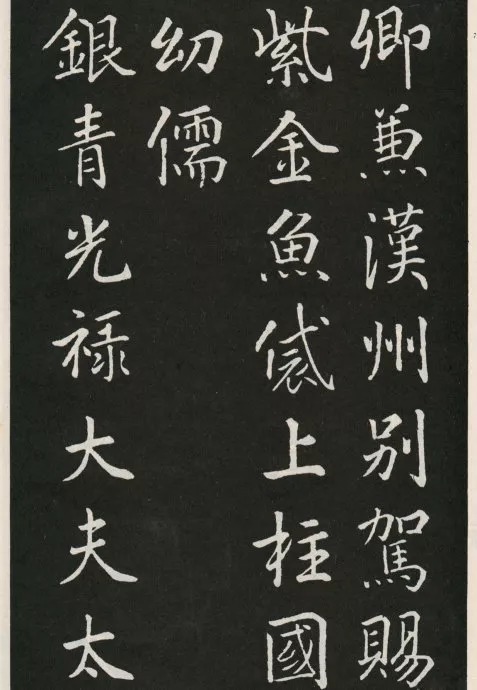 卿兼漢州別駕賜
紫金魚袋上柱國
幼儒
銀青光祿大夫太